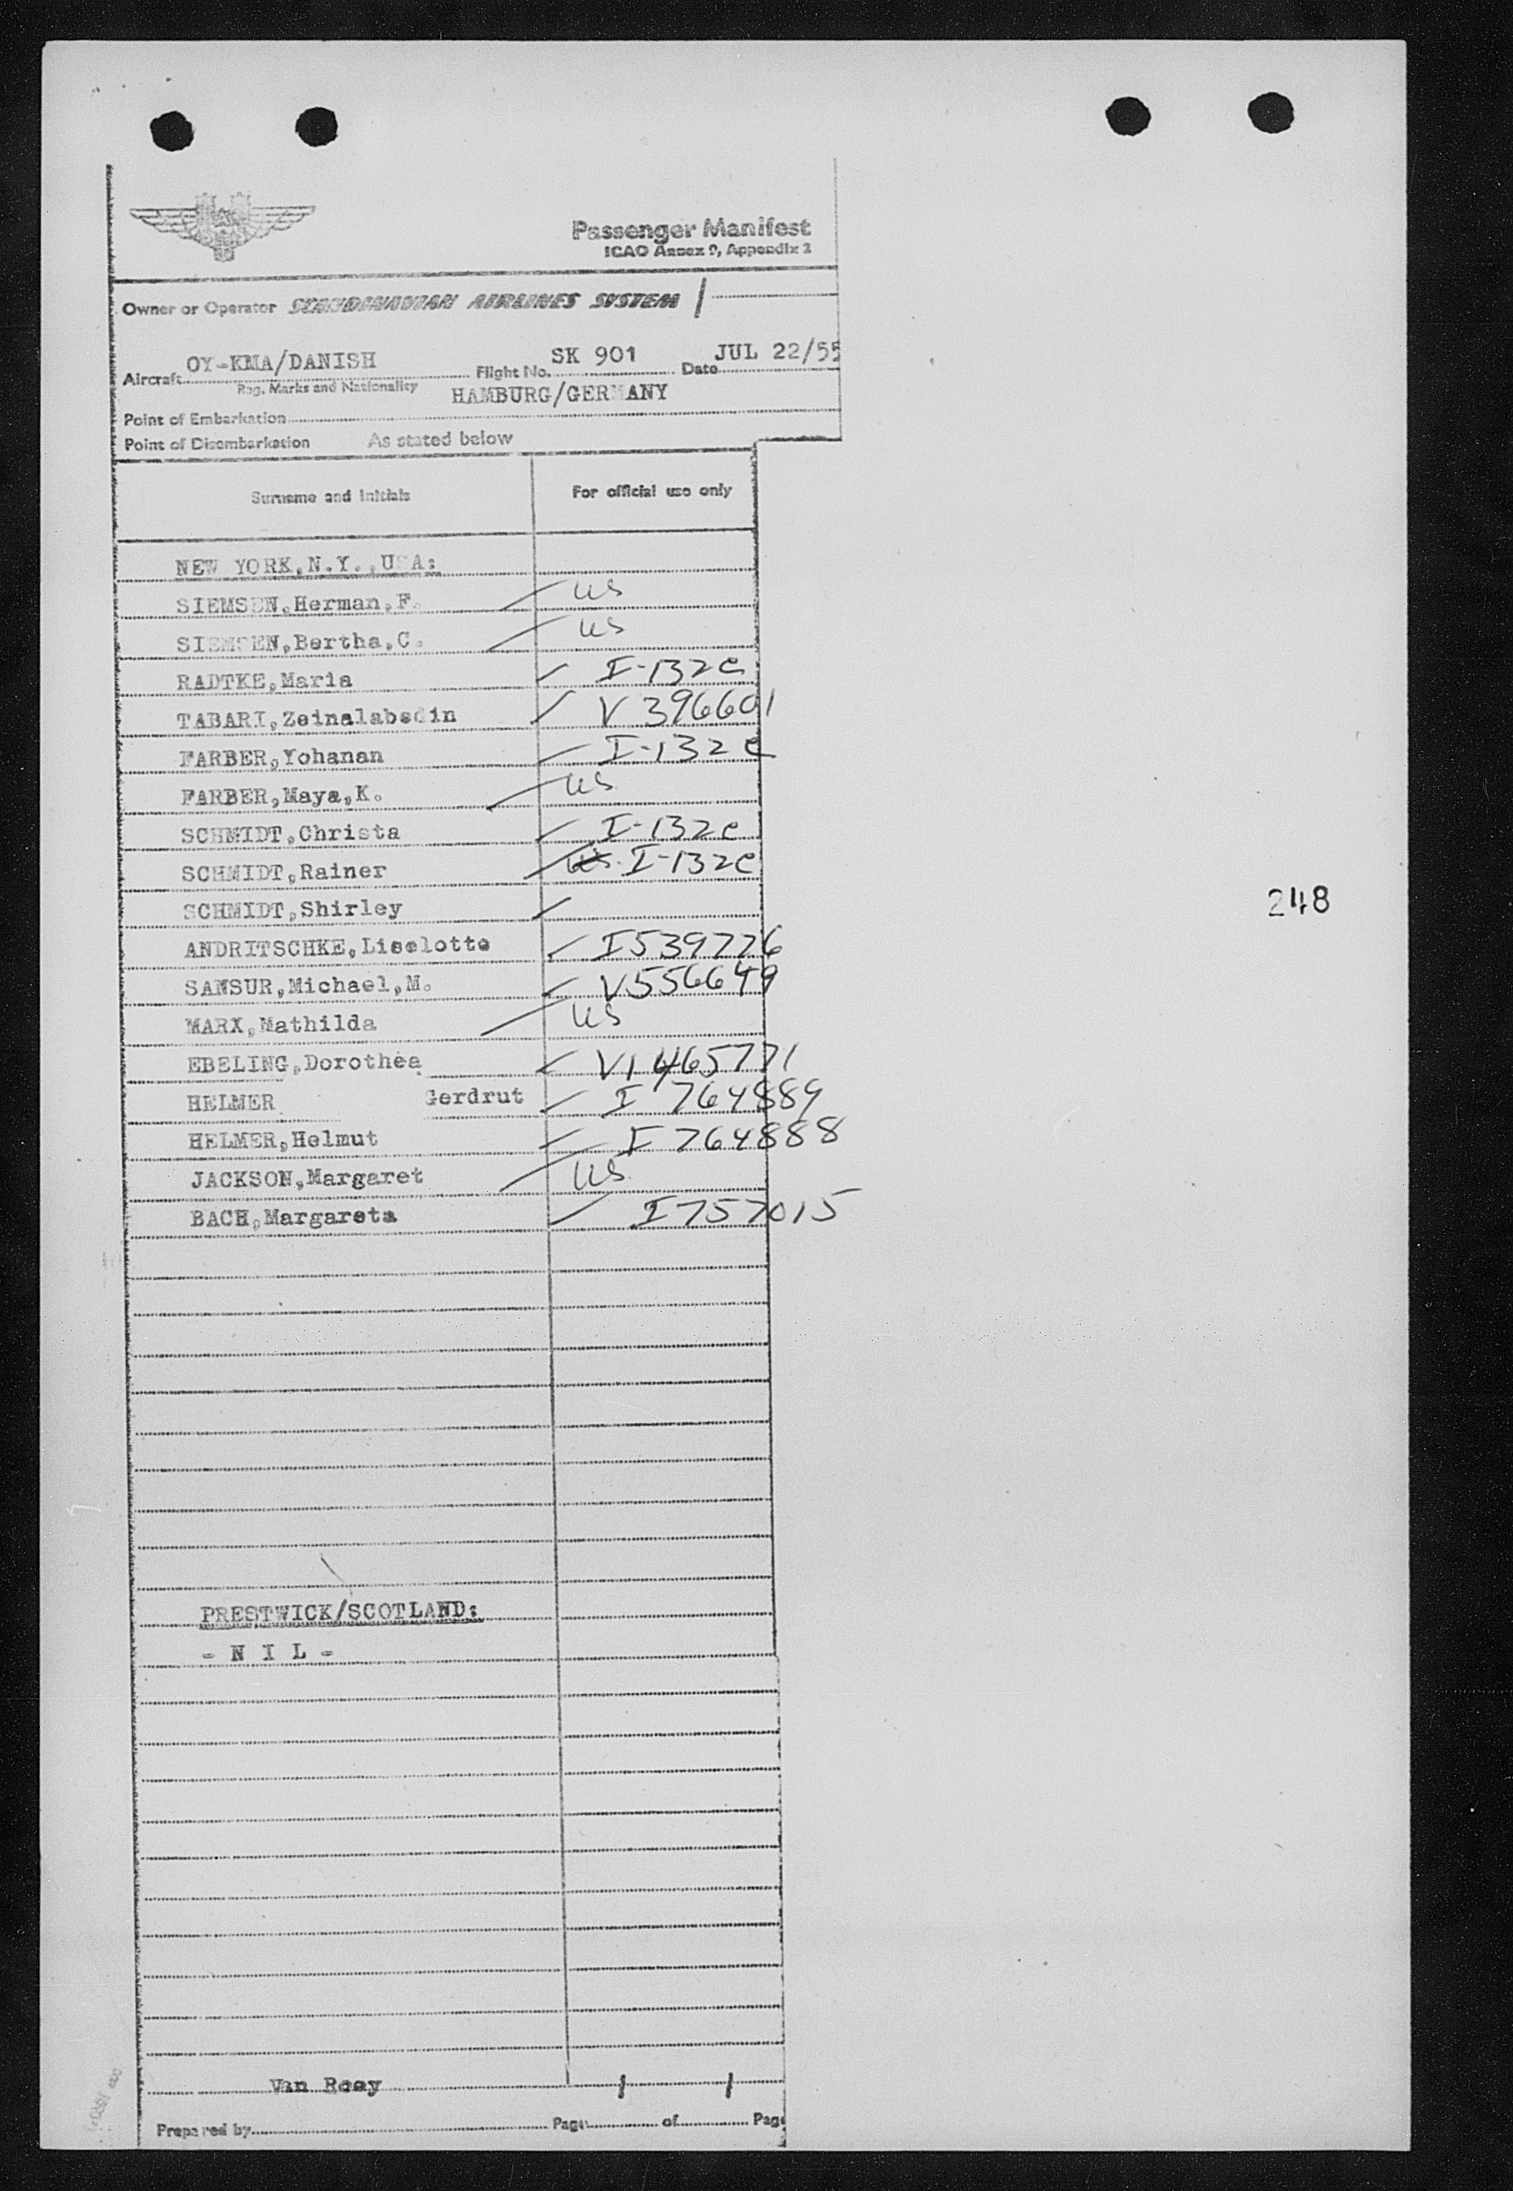 Passenger Manifest
ICAO Annex 9, Appendix 2
Owner or Operator SCANDINAVIAN AIRLINES SYSTEM
OY-KMA/DANISH SK 901 JUL 22/55
Aircraft Flight No. Date
Reg. Marks and Nationality
HAMBURG/GERMANY
Point of Embarkation
Point of Disembarkation As stated below
Surname and Initials For official use only
NEW YORK,N.Y.,USA:
SIEMSEN,Herman,F. US
SIEMSEN,Bertha,C. US
RADTKE,Maria I-132c
TABARI,Zeinalabedin V 396601
FARBER,Yohanan I-132c
FARBER,Maya,K. US
SCHMIDT,Christa I-132c
SCHMIDT,Rainer US I-132c
SCHMIDT,Shirley
ANDRITSCHKE,Liselotte I539726
SANSUR,Michael,M. V556649
MARX,Mathilda US
EBELING,Dorothea V1465771
HELMER Gerdrut I 764889
HELMER,Helmut I 764888
JACKSON,Margaret US
BACH,Margareta I757015
248
PRESTWICK/SCOTLAND:
- N I L -
Van Roey 1 1
Prepared by Page of Page